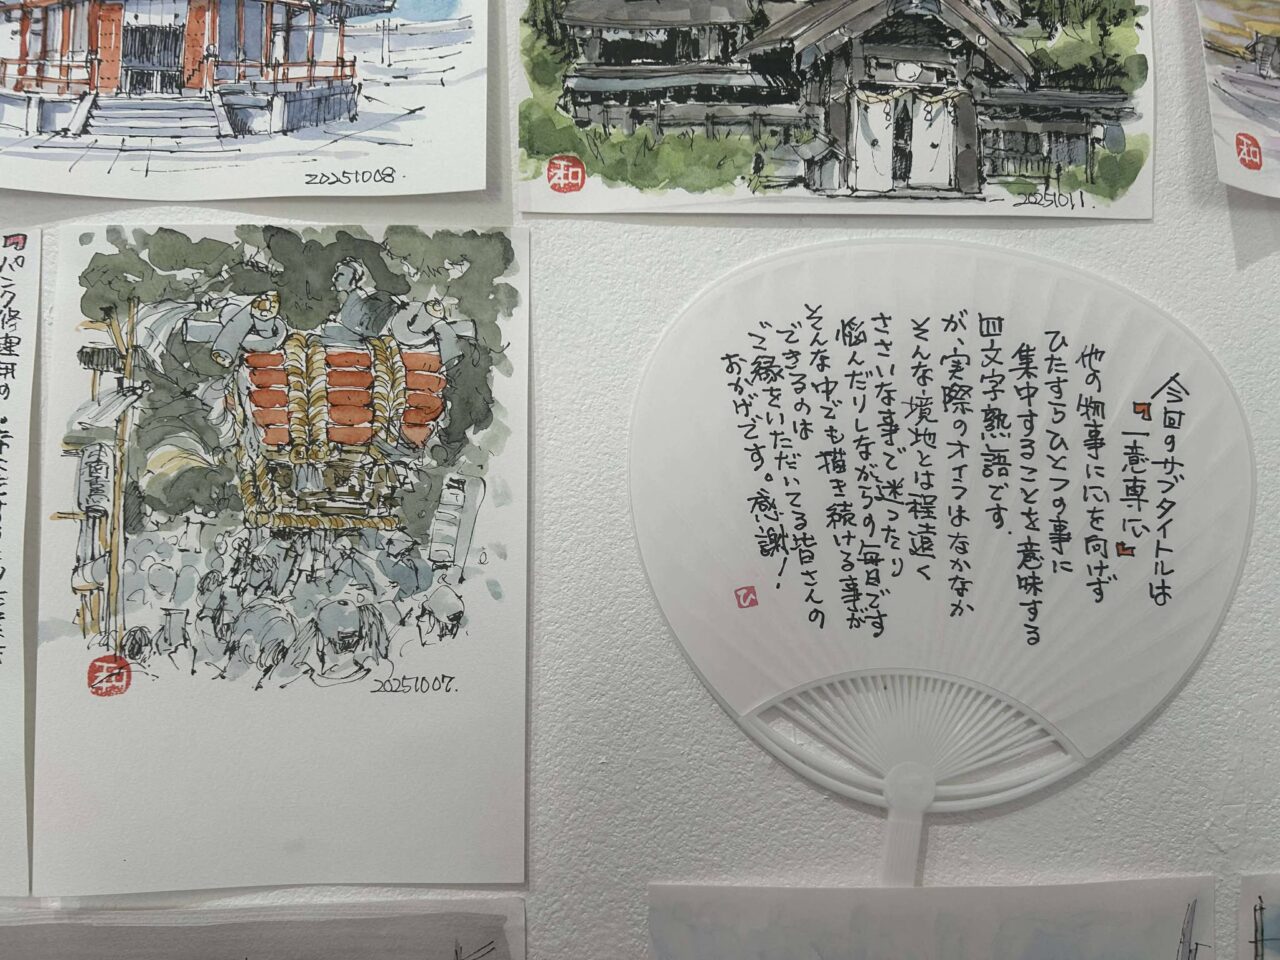 20251008.
和
20251011.
和
パンク修理用の
20251007.
和
今回のサブタイトルは
『一意専心』
他の物事に心を向けず
ひたすらひとつの事に
集中することを意味する
四文字熟語です.
が、実際のオイラはなかなか
そんな境地とは程遠く
ささいな事で迷ったり
悩んだりしながらの毎日です
そんな中でも描き続ける事が
できるのは
ご縁をいただいてる皆さんの
おかげです。感謝!
ひ